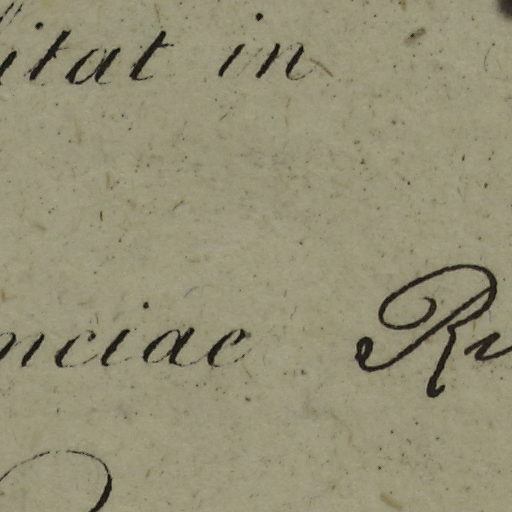 itat in
nciae Ru